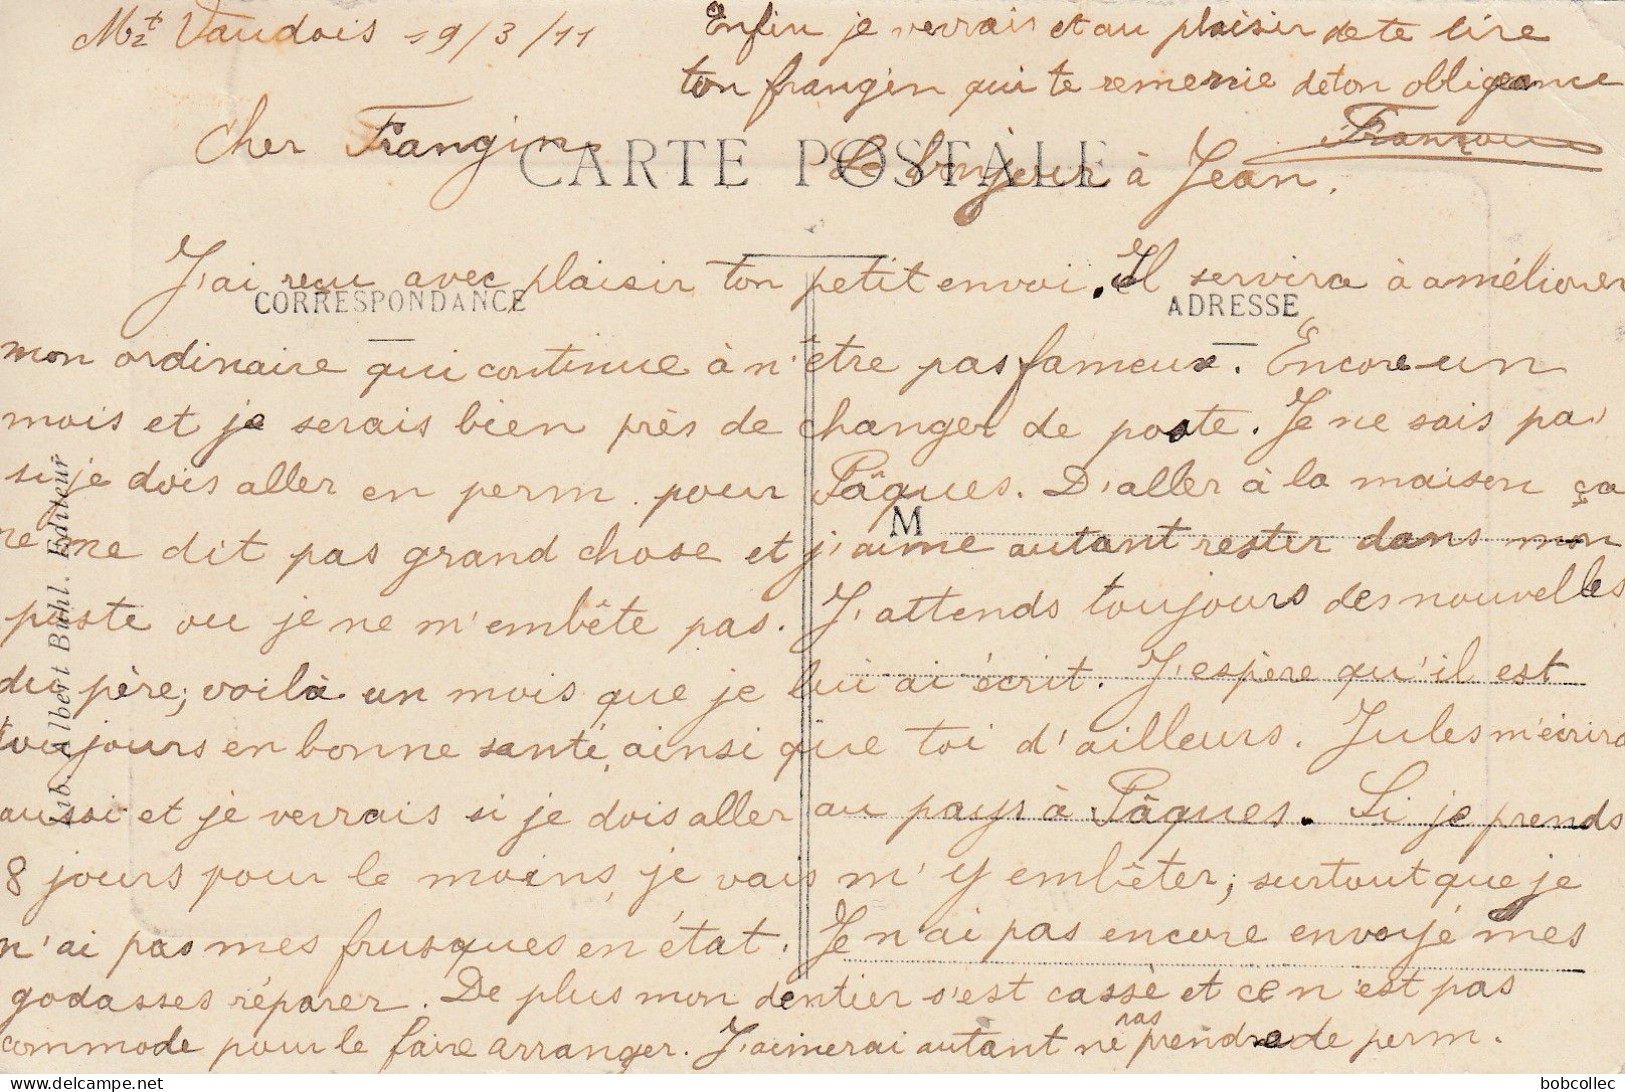 Mt Vaudois 19/3/11
Cher Frangin
CARTE POSTALE
CORRESPONDANCE
ADRESSE
M
Lib. Albert Buhl. Editeur
J'ai reçu avec plaisir ton petit envoi. Il servira à améliorer
mon ordinaire qui continue à n'être pas fameux. Encore un
mois et je serais bien près de changer de poste. Je ne sais pas
si je dois aller en perm pour Pâques. D'aller à la maison ça
ne me dit pas grand chose et j'aime autant rester dans mon
poste ou je ne m'embête pas. J'attends toujours des nouvelles
du père, voilà un mois que je lui ai écrit. J'espère qu'il est
toujours en bonne santé, ainsi que toi d'ailleurs. Jules m'écrira
aussi et je verrais si je dois aller au pays à Pâques. Si je prends
8 jours pour le moins, je vais m'y embêter, surtout que je
n'ai pas mes frusques en état. Je n'ai pas encore envoyé mes
godasses réparer. De plus mon dentier s'est cassé et ce n'est pas
commode pour le faire arranger. J'aimerai autant ne pas prendre de perm.
Enfin je verrais et au plaisir de te lire
ton frangin qui te remercie de ton obligeance
François
Le bonjour à Jean.
bobcollec